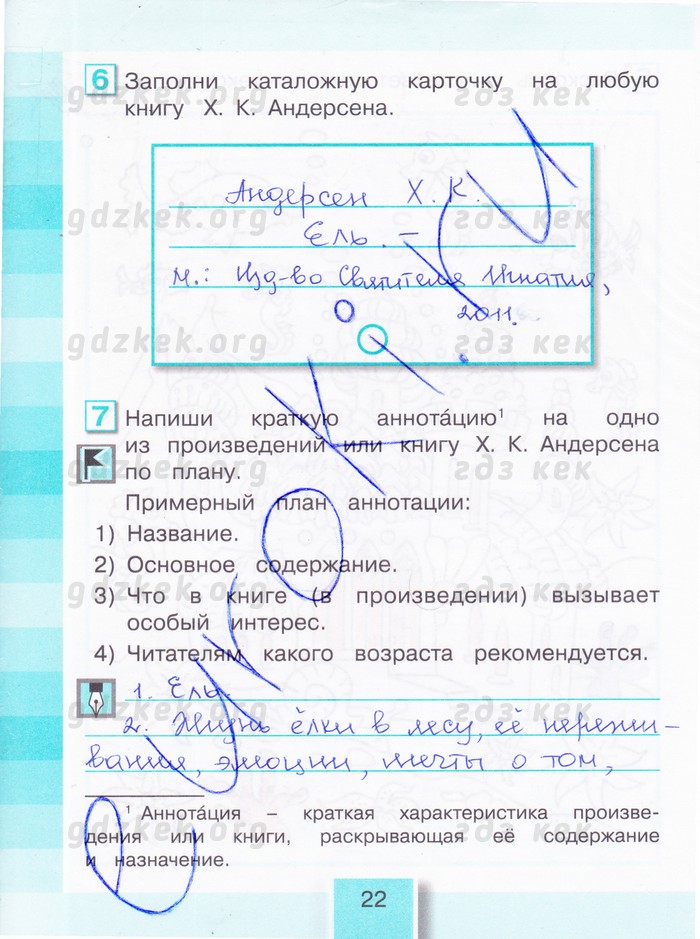 6 Заполни каталожную карточку на любую
книгу Х. К. Андерсена.
gdzkek.org гдз кек
Андерсен Х. К.
gdzkek.org гдз кек
Ель. –
М.: Изд-во Святителя Игнатия,
2011.
gdzkek.org гдз кек
7 Напиши краткую аннота́цию¹ на одно
из произведений или книгу Х. К. Андерсена
по плану.
gdzkek.org гдз кек
Примерный план аннотации:
1) Название.
2) Основное содержание.
gdzkek.org гдз кек
3) Что в книге (в произведении) вызывает
особый интерес.
4) Читателям какого возраста рекомендуется.
1. Ель.
gdzkek.org гдз кек
2. Жизнь ёлки в лесу, её пережи-
вания, эмоции, мечты о том,
¹ Аннота́ция – краткая характеристика произве-
дения или книги, раскрывающая её содержание
и назначение.
gdzkek.org гдз кек
22
еуроки.ру